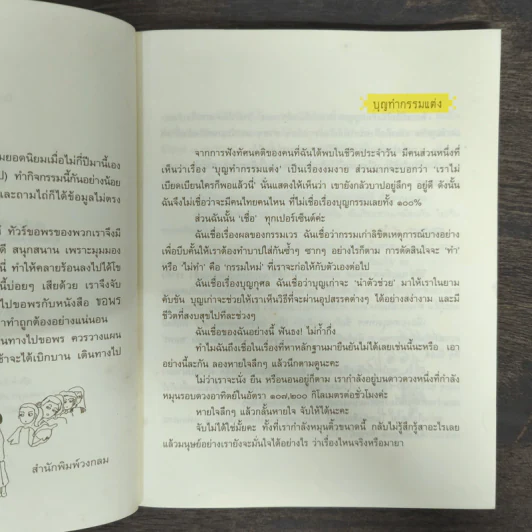 มยอดนิยมเมื่อไม่กี่ปีมานี้เอง
ป) ทำกิจกรรมนี้กันอย่างน้อย
และถามไถ่ก็ได้ข้อมูลไม่ตรง
ที่ ทัวร์ขอพรของพวกเราจึงมี
ดี สนุกสนาน เพราะมุมมอง
นี่ ทำให้คลายร้อนลงไปได้โข
นี้บ่อยๆ เสียด้วย เราจึงจับ
ไปขอพรกับหนังสือ ขอพร
าทำถูกต้องอย่างแน่นอน
นทางไปขอพร ควรวางแผน
ข้าจะได้เบิกบาน เดินทางไป
สำนักพิมพ์วงกลม
บุญทำกรรมแต่ง
จากการฟังทัศนคติของคนที่ฉันได้พบในชีวิตประจำวัน มีคนส่วนหนึ่งที่
เห็นว่าเรื่อง ‘บุญทำกรรมแต่ง’ เป็นเรื่องงมงาย ส่วนมากจะบอกว่า ‘เราไม่
เบียดเบียนใครก็พอแล้วนี่’ นั่นแสดงให้เห็นว่า เขายังกลัวบาปอยู่ลึกๆ อยู่ดี ดังนั้น
ฉันจึงไม่เชื่อว่าจะมีคนไทยคนไหน ที่ไม่เชื่อเรื่องบุญกรรมเลยทั้ง ๑๐๐%
ส่วนฉันนั้น ‘เชื่อ’ ทุกเปอร์เซ็นต์ค่ะ
ฉันเชื่อเรื่องผลของกรรมเวร ฉันเชื่อว่ากรรมเก่าลิขิตเหตุการณ์บางอย่าง
เพื่อบีบคั้นให้เราต้องทำบาปใส่กันซ้ำๆ ซากๆ อย่างไรก็ตาม การตัดสินใจจะ ‘ทำ’
หรือ ‘ไม่ทำ’ คือ ‘กรรมใหม่’ ที่เราจะก่อให้กับตัวเองต่อไป
ฉันเชื่อเรื่องบุญกุศล ฉันเชื่อว่าบุญเก่าจะ ‘นำตัวช่วย’ มาให้เราในยาม
คับขัน บุญเก่าจะช่วยให้เราเห็นวิธีที่จะผ่านอุปสรรคต่างๆ ได้อย่างสง่างาม และมี
ชีวิตที่สงบสุขไปทีละช่วงๆ
ฉันเชื่อของฉันอย่างนี้ ฟันธง! ไม่ก้ำกึ่ง
ทำไมฉันถึงเชื่อในเรื่องที่หาหลักฐานมายืนยันไม่ได้เลยเช่นนี้นะหรือ เอา
อย่างนี้ละกัน ลองหายใจลึกๆ แล้วนึกตามดูนะคะ
ไม่ว่าเราจะนั่ง ยืน หรือนอนอยู่ก็ตาม เรากำลังอยู่บนดาวดวงหนึ่งที่กำลัง
หมุนรอบดวงอาทิตย์ในอัตรา ๑๐๗,๒๐๐ กิโลเมตรต่อชั่วโมงค่ะ
หายใจลึกๆ แล้วกลั้นหายใจ จับให้ได้นะคะ
จับไม่ได้ใช่มั้ยคะ ทั้งที่เรากำลังหมุนติ้วขนาดนี้ กลับไม่รู้สึกรู้สาอะไรเลย
แล้วมนุษย์อย่างเรายังจะมั่นใจได้อย่างไร ว่าเรื่องไหนจริงหรือมายา